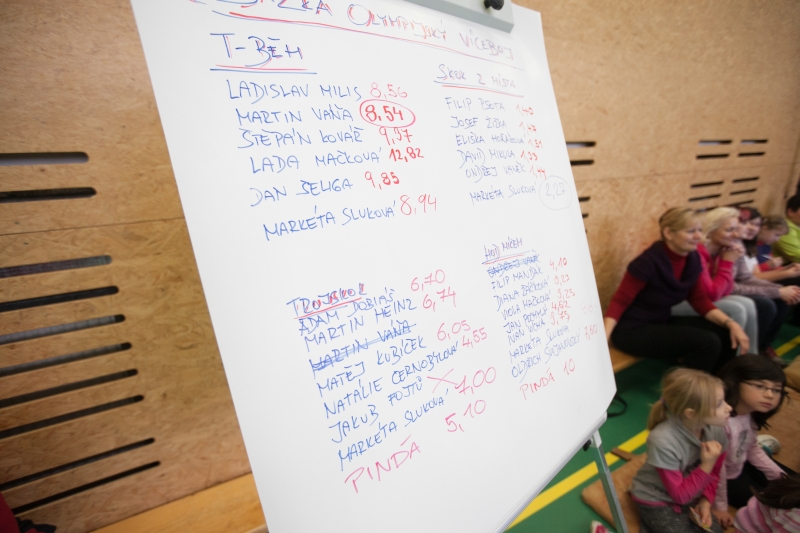 OLYMPIJSKÝ VÍCEBOJ
T-BĚH
LADISLAV MILIS 8,56
MARTIN VÁŇA 8,54
ŠTĚPÁN KOVÁŘ 9,97
LADA MAČKOVÁ 12,82
JAN SELIGA 9,85
MARKÉTA SLUKOVÁ 8,94
SKOK Z MÍSTA
FILIP PSOTA
JOSEF ŽÍDK
ELIŠKA HORÁKOVÁ
DAVID MIKULA
ONDŘEJ
MARKÉTA SLUKOVÁ 2,23
TROJSKOK
ADAM DOBIÁŠ 6,70
MARTIN HEINZ 6,74
MARTIN VÁŇA
MATĚJ KUBÍČEK 6,05
NATÁLIE ČERNOBÝLOVÁ 4,55
JAKUB FOJTŮ
MARKÉTA SLUKOVÁ 7,00
PINĎÁ 5,10
HOD MÍČEM
FILIP
DIANA
MAČKOVÁ
JAN
IVAN
MARKÉTA SLUKOVÁ
OLDŘICH 7,50
PINĎÁ 10